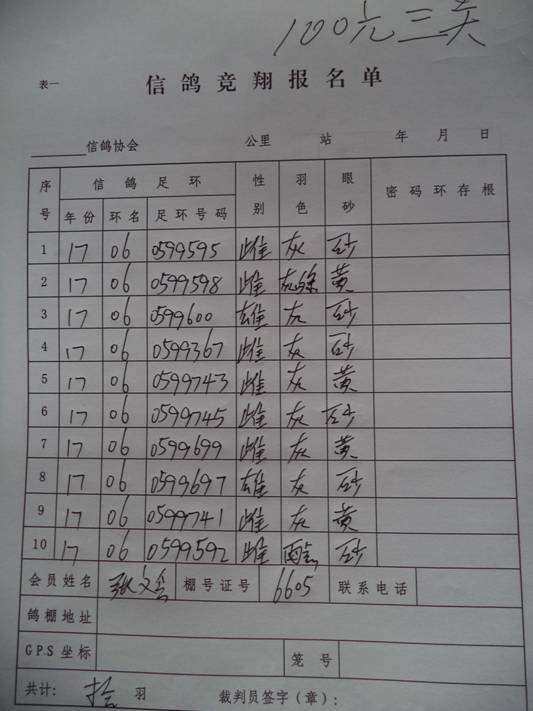 100元三关
表一
信鸽竞翔报名单
信鸽协会 公里 站 年 月 日
序号 信鸽足环 性别 羽色 眼砂 密码环存根
年份 环名 足环号码
1 17 06 0599595 雌 灰 砂
2 17 06 0599598 雌 灰 黄
3 17 06 0599600 雄 灰 砂
4 17 06 0599367 雌 灰 砂
5 17 06 0599743 雌 灰 黄
6 17 06 0599745 雌 灰 砂
7 17 06 0599699 雌 灰 黄
8 17 06 0599697 雄 灰 砂
9 17 06 0599741 雌 灰 黄
10 17 06 0599592 雌 砂
会员姓名 张文 棚号证号 6605 联系电话
鸽棚地址
GPS坐标 笼号
共计: 拾 羽 裁判员签字(章):